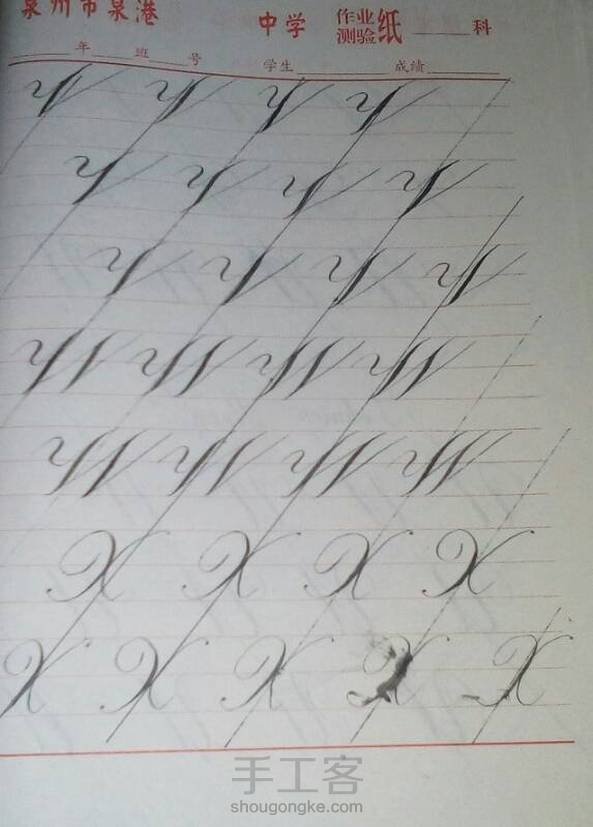 泉州市泉港 中学 作业测验纸 科
年 班 号 学生 成绩
V V V V
V V V V
V V V V
W W W W
W W W W
X X X X
X X X X X
手工客
shougongke.com